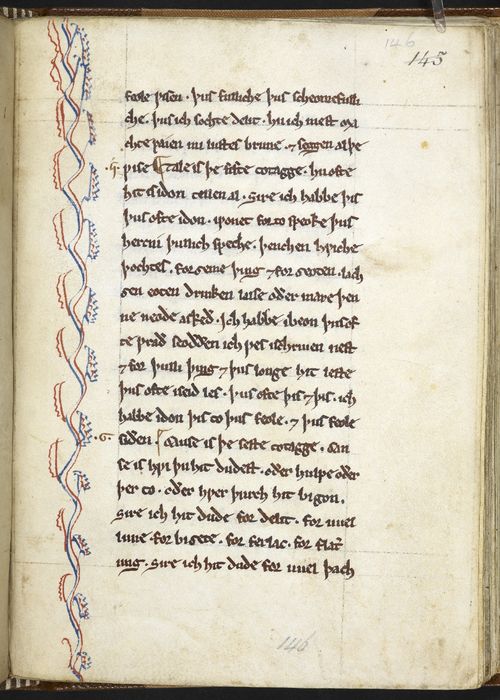 145
146
feole ƿisen . þus fulliche þus scheomefulli
che . þus ich sohte delit . hu ich mest ma
chte paien mi lustes brune . ⁊ seggen al þe
.5. ƿise Tale is þe fifte totagge . hu ofte
hit is idon tellen al . Sire ich habbe þis
þus ofte idon . iƿonet for to speoke þus
hercni þullich speche . þenchen hƿiche
þochtes . forȝeme þing ⁊ forȝeoten . lach
ȝen eoten drinken lasse oðer mare þen
ne neode askeð . Ich habbe ibeon þus of
te ƿrað seoððen ich ƿes ischriuen nest
⁊ for þulli þing ⁊ þus longe hit leste
þus ofte iseid les . þus ofte þis ⁊ þis . ich
habbe idon þis to þus feole . ⁊ þus feole
.6. siðen Cause is þe seste totagge . Cau
se is hƿi þu hit dudest . oðer hulpe oðer
þer to . oðer hƿer þurch hit bigon .
Sire ich hit dude for delit . for uuel
luue . for biȝete . for ferlac . for flatt̄
ung . Sire ich hit dude for uuel þach
146